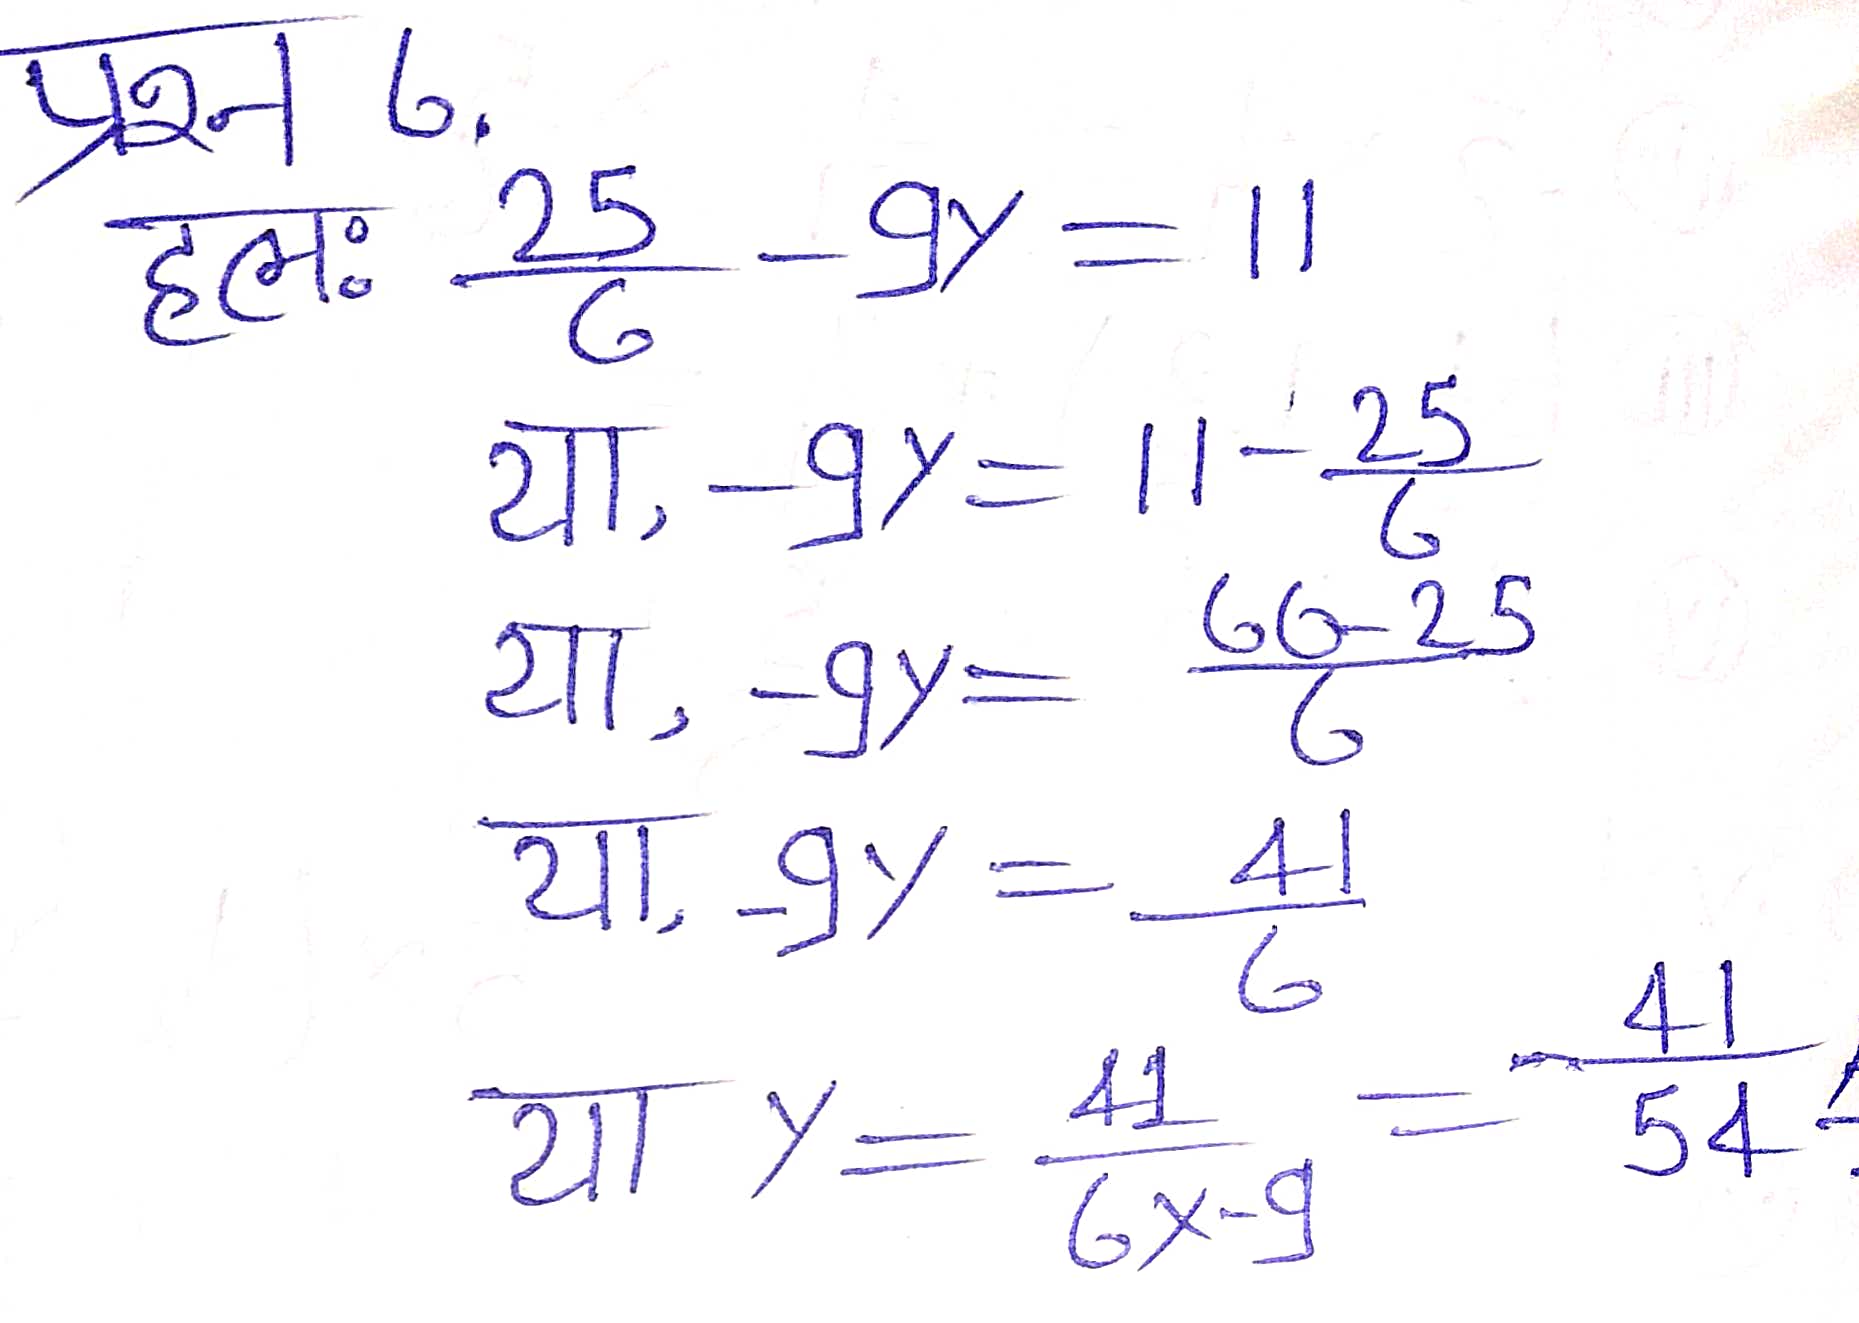 प्रश्न 6.
हल: 25/6 - 9y = 11
या, -9y = 11 - 25/6
या, -9y = 66-25/6
या, -9y = 41/6
या y = 41/6x-9 = -41/54